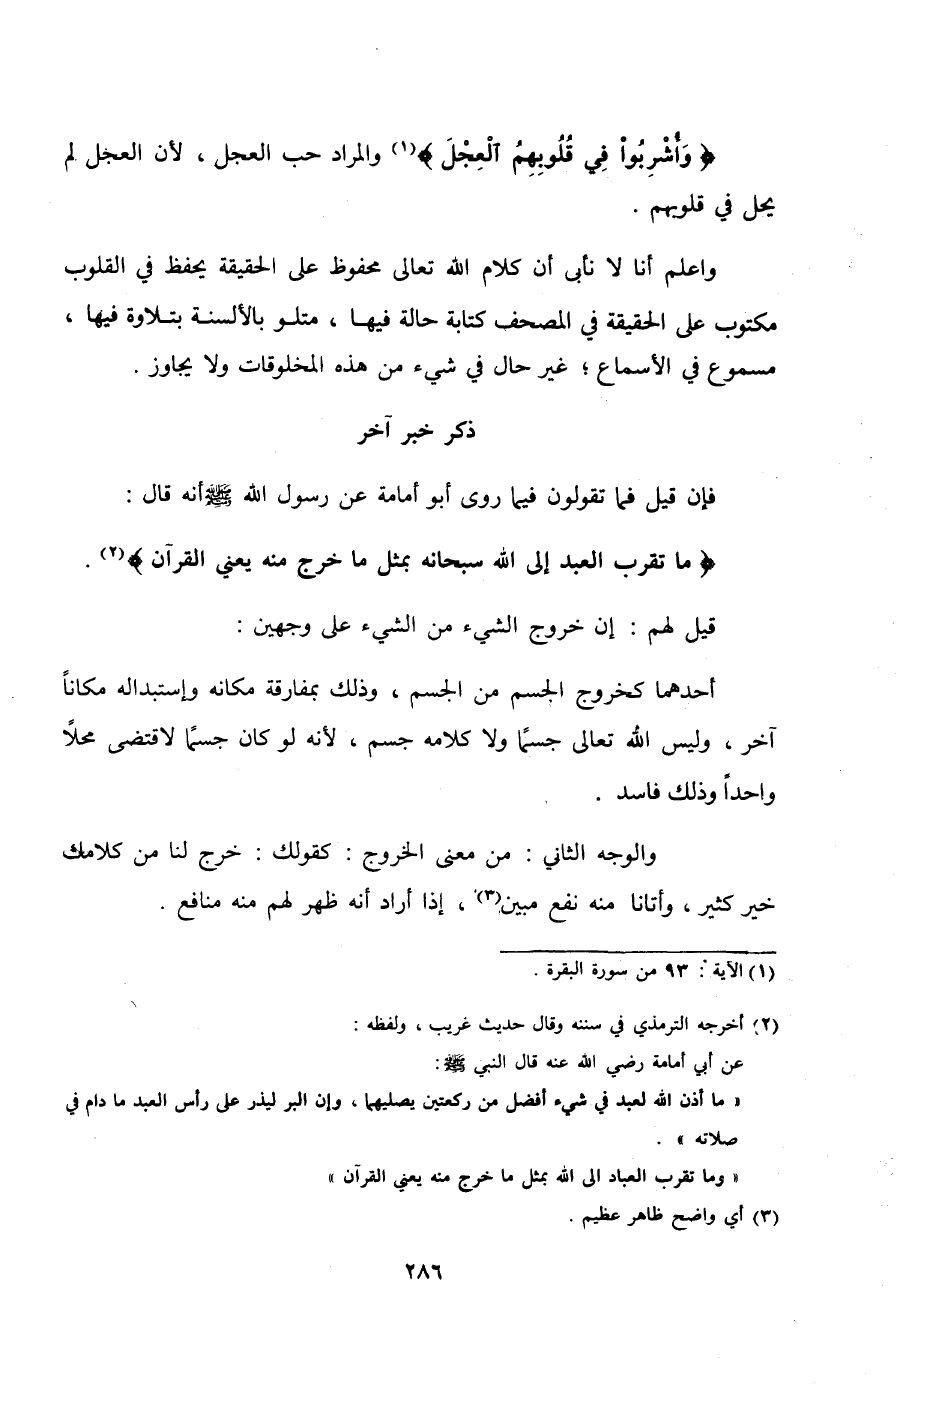 ﴿ وَأُشْرِبُواْ فِي قُلُوبِهِمُ ٱلْعِجْلَ ﴾(١) والمراد حب العجل ، لأن العجل لم
يحل في قلوبهم .
واعلم أنا لا نأبى أن كلام الله تعالى محفوظ على الحقيقة يحفظ في القلوب
مكتوب على الحقيقة في المصحف كتابة حالة فيها ، متلو بالألسنة بتلاوة فيها ،
مسموع في الأسماع ؛ غير حال في شيء من هذه المخلوقات ولا يجاوز .
ذكر خبر آخر
فإن قيل فما تقولون فيما روى أبو أمامة عن رسول الله ﷺ أنه قال :
﴿ ما تقرب العبد إلى الله سبحانه بمثل ما خرج منه يعني القرآن ﴾(٢) .
قيل لهم : إن خروج الشيء من الشيء على وجهين :
أحدهما كخروج الجسم من الجسم ، وذلك بمفارقة مكانه وإستبداله مكاناً
آخر ، وليس الله تعالى جسمًا ولا كلامه جسم ، لأنه لو كان جسمًا لاقتضى محلًا
واحداً وذلك فاسد .
والوجه الثاني : من معنى الخروج : كقولك : خرج لنا من كلامك
خير كثير ، وأتانا منه نفع مبين(٣) ، إذا أراد أنه ظهر لهم منه منافع .
(١) الآية : ٩٣ من سورة البقرة .
(٢) أخرجه الترمذي في سننه وقال حديث غريب ، ولفظه :
عن أبي أمامة رضي الله عنه قال النبي ﷺ :
« ما أذن الله لعبد في شيء أفضل من ركعتين يصليهما ، وإن البر ليذر على رأس العبد ما دام في
صلاته » .
« وما تقرب العباد الى الله بمثل ما خرج منه يعني القرآن »
(٣) أي واضح ظاهر عظيم .
٢٨٦